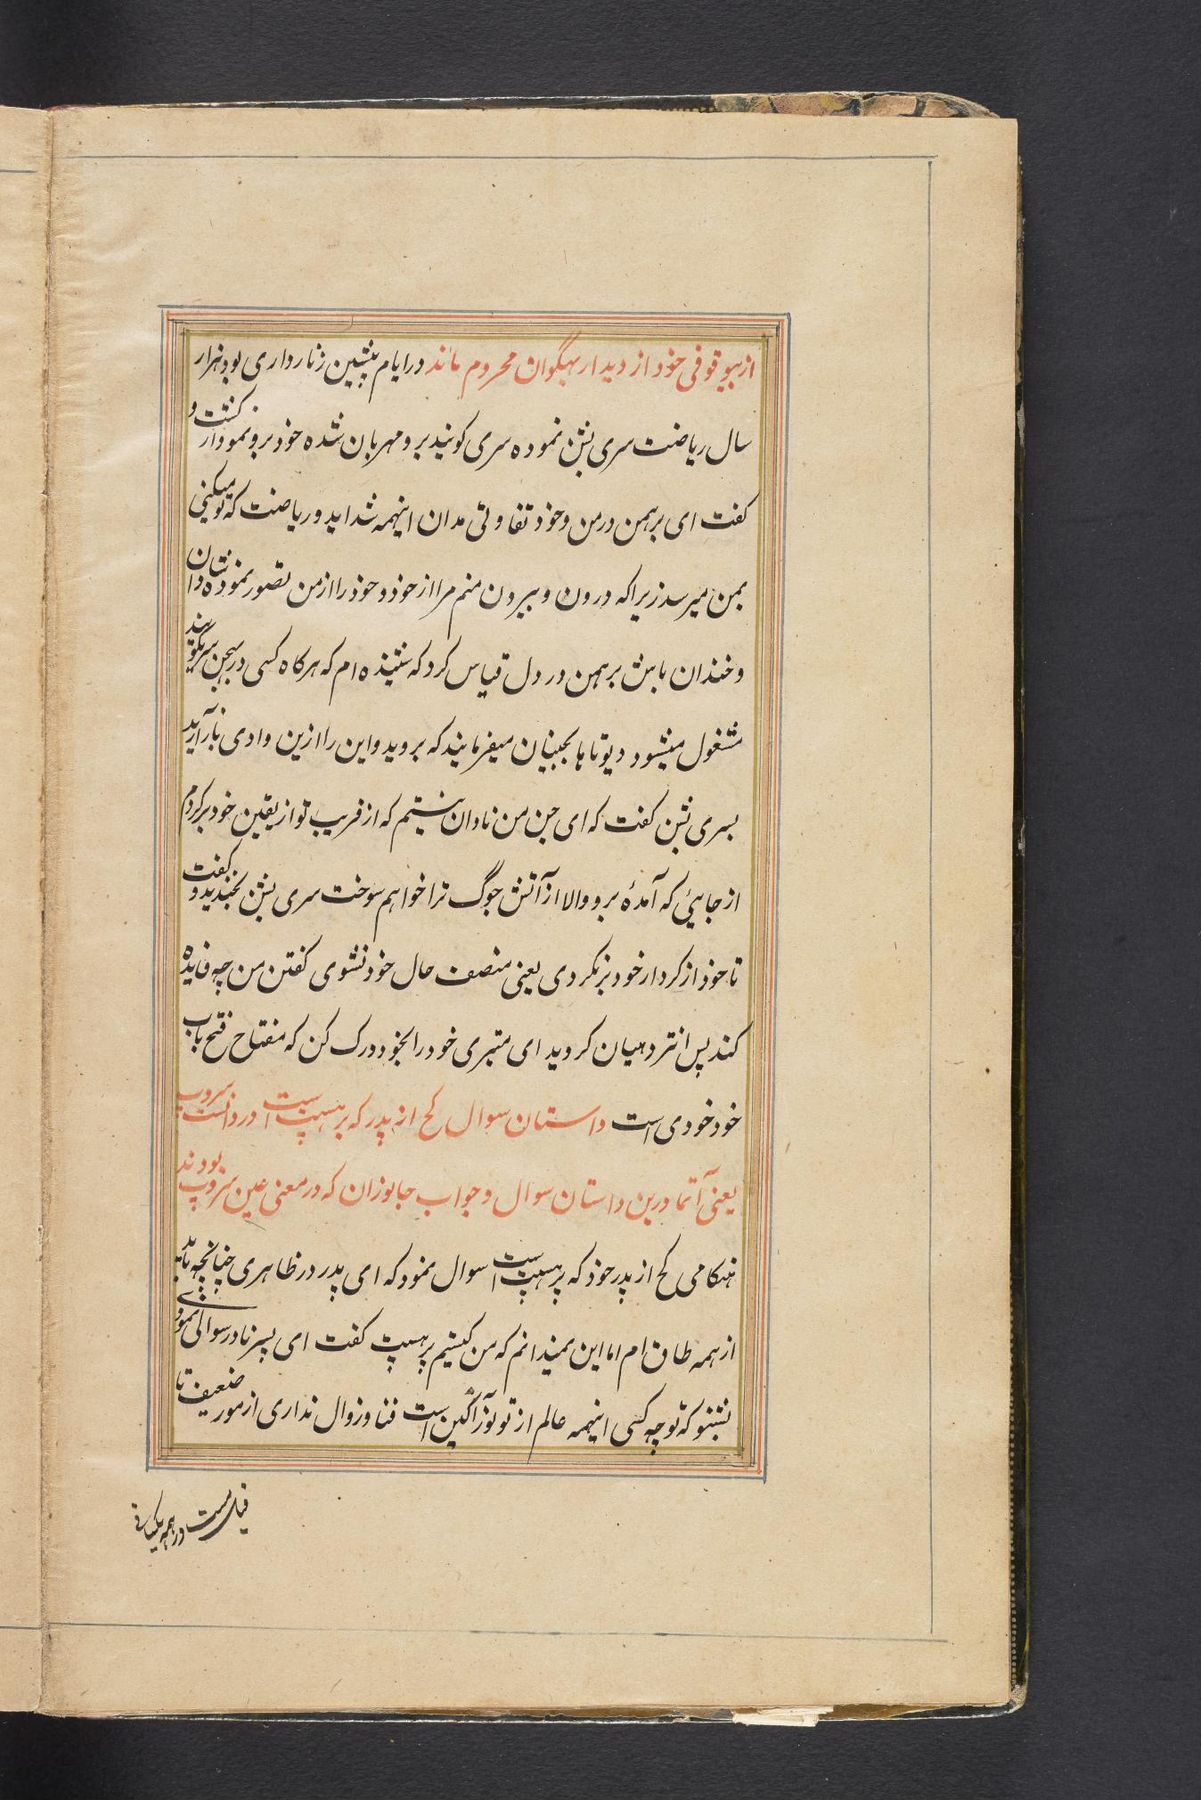 از بیوقوفی خود از دیدار بهگوان محروم ماند در ایام پیشین زنارداری بود هزار
سال ریاضت سری بشن نموده سری کوبند برو مهربان شده خود برو نمودار کشت و
کفت ای برهمن در من و خود تفاوتی مدان اینهمه شداید و ریاضت که تو میکنی
بمن میرسد زیرا که درون و بیرون منم مرا از خود و خود را از من تصور نموده شادان
و خندان باش برهمن در دل قیاس کرد که شنیده ام که هرکاه کسی در بهجن سریکوبند
مشغول میشود دیوتاها بجنیان میفرمایند که بروید و این را ازین وادی باز آرید
بسری بشن کفت که ای جن من نادان نیستم که از فریب تو از یقین خود برکردم
از جاهیئی که آمدهٔ برو والا از آتش جوگ ترا خواهم سوخت سری بشن بخندید و کفت
تا خود از کردار خود برنکردی یعنی منصف حال خود نشوی کفتن من چه فایده
کند پس انتردهیان کردید ای متبری خود را بخود درک کن که مفتاح فتح باب
خود خودی است داستان سوال کچ از پدر که برهسپت است در دانست سروپ
یعنی آتما درین داستان سوال و جواب جانوران که در معنی عین سروپ بودند
هنکامی کچ از پدر خود که برهسپت است سوال نمود که ای پدر در ظاهری چنانچه باید
از همه طاق ام اما این نمیدانم که من کیستم برهسپت کفت ای پسر نادر سوالی نمودی
بشنو که تو چه کسی اینهمه عالم از تو نورآکین است فنا و زوال نداری از مور ضعیف تا
فیل مست در همه یکسانی